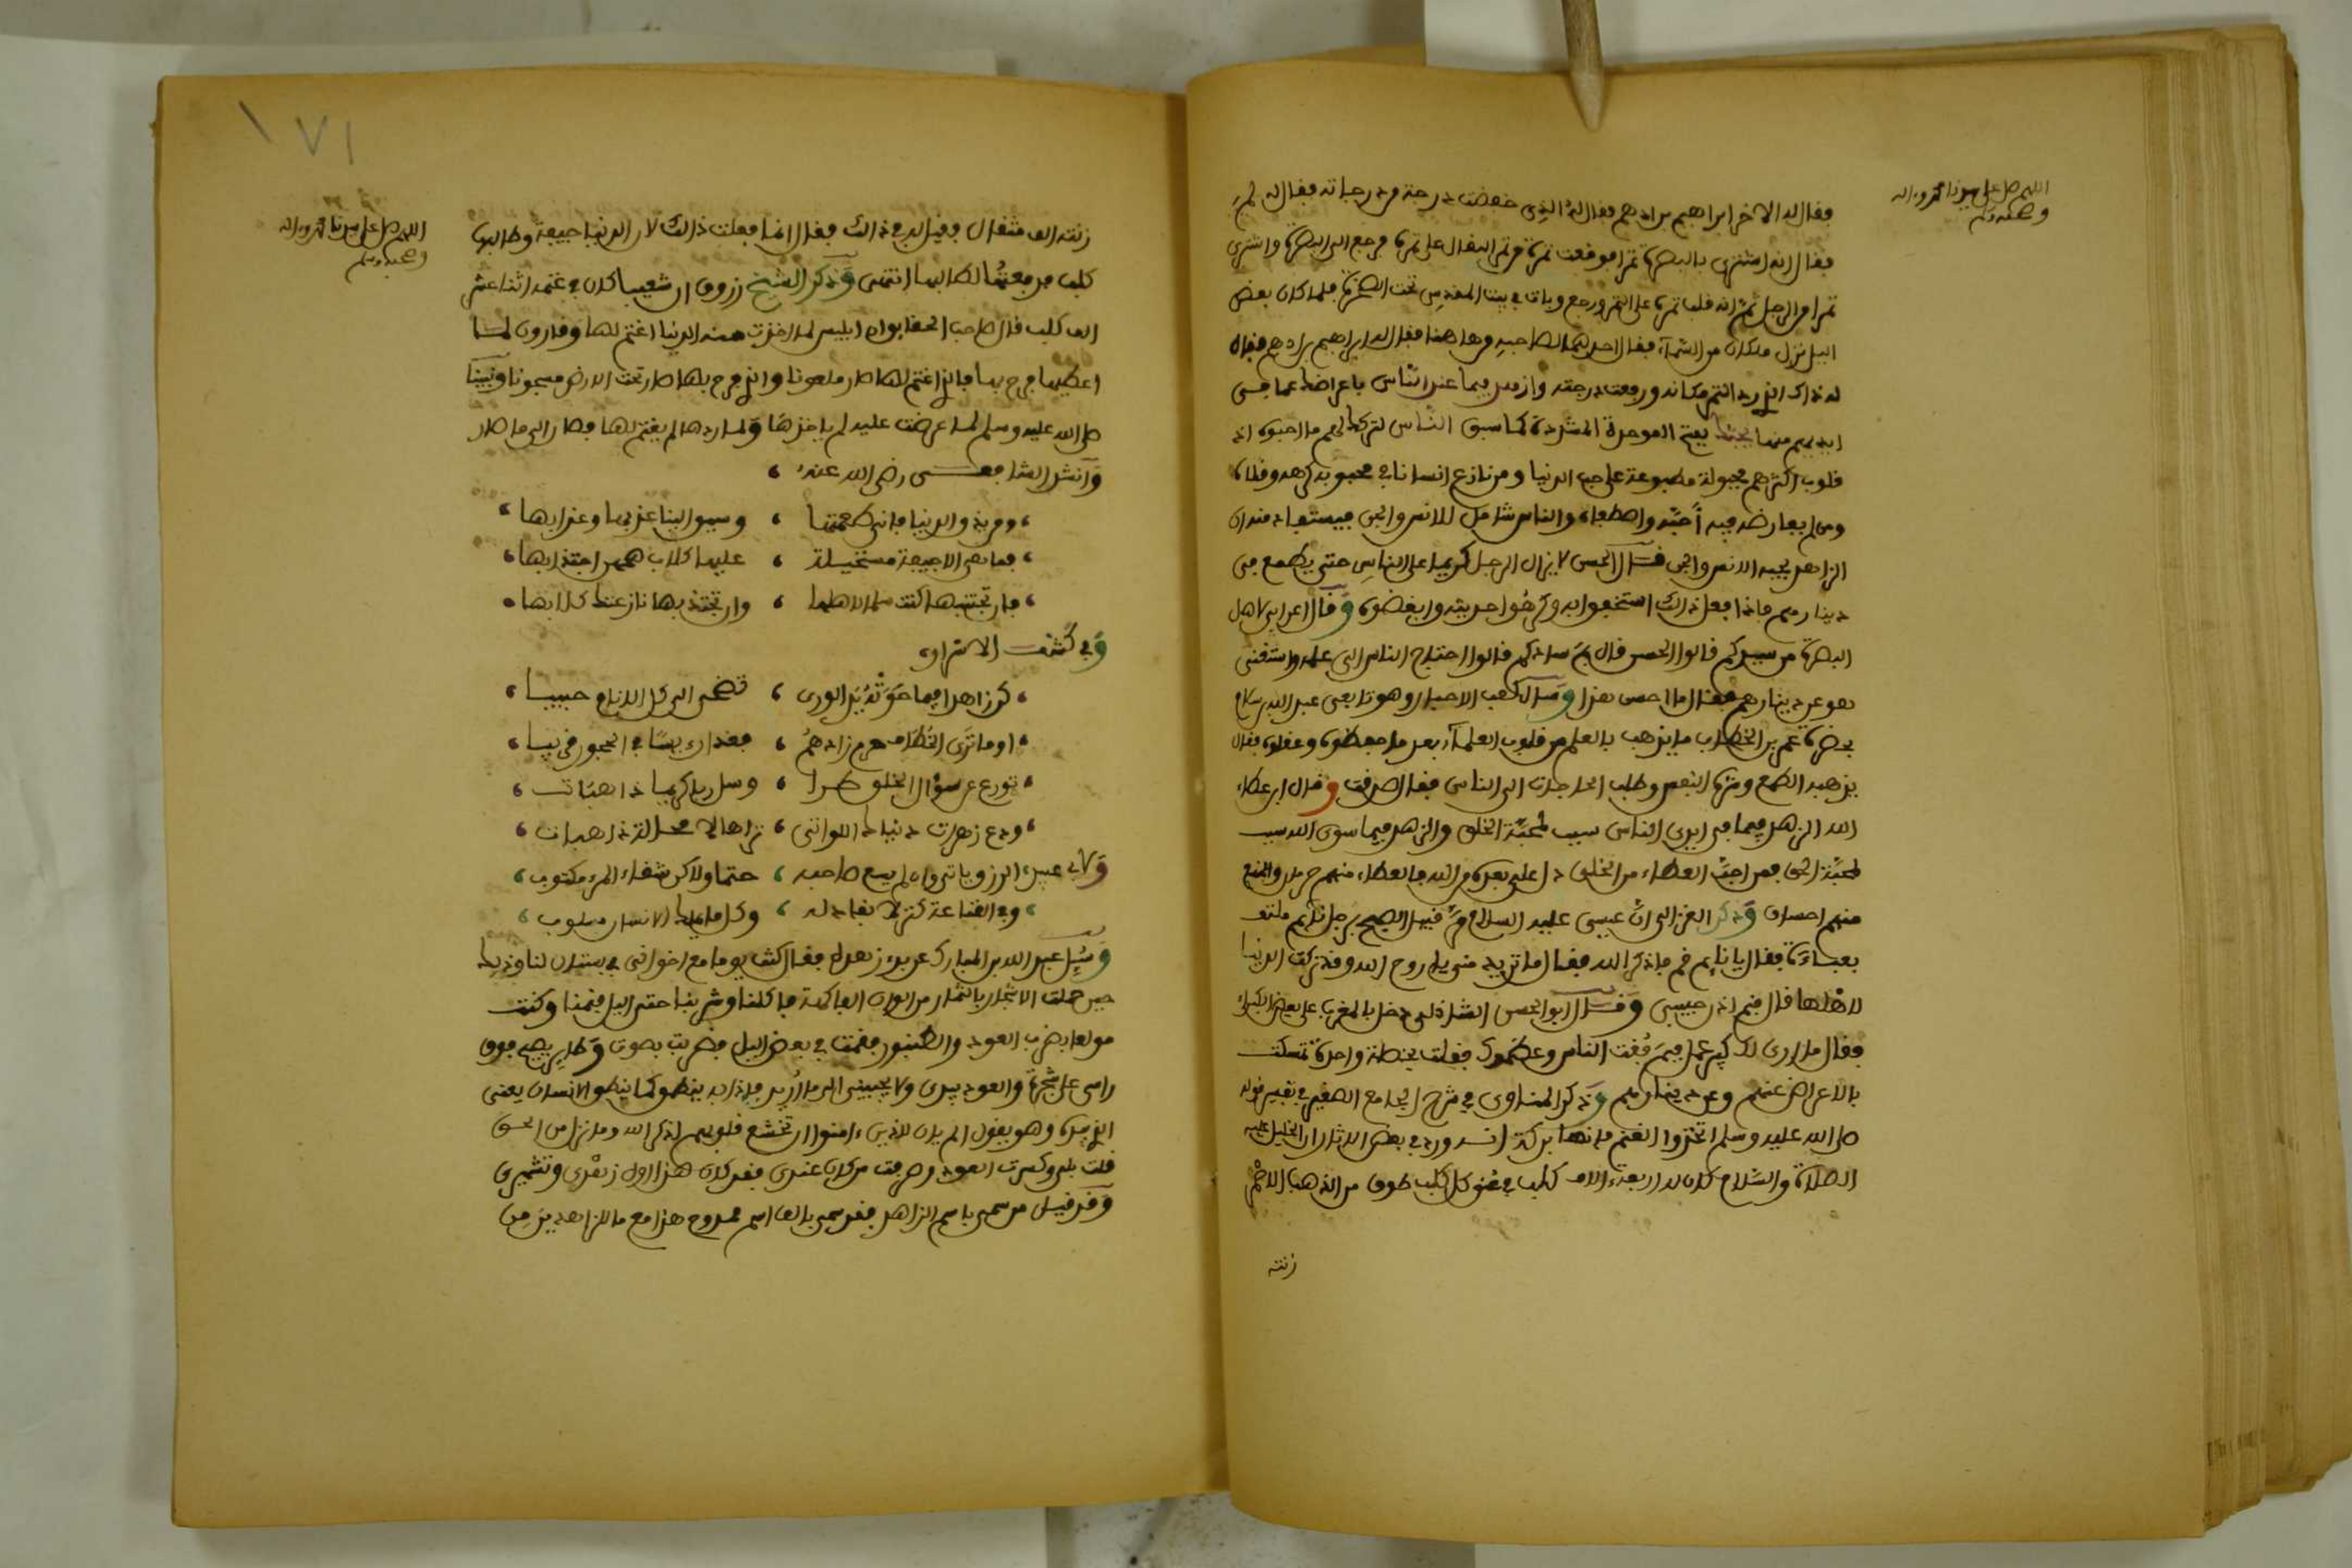 اللهم صل على سيدنا محمد وءاله
وصحبه وسلم
فقال له الاخر ابراهيم بن ادهم فقال له الذي خفضت درجة من درجاته فقال له لم
فقال انه اشترى بالبصرة تمرا فوقعت تمرة من تمر البقال على تمره فرجع الى البصرة واشترى
تمرا من الرجل ثم انه قلب تمرة على التمر ورجع وبات في بيت المقدس تحت الصخرة فلما كان بعض
اليل نزل ملكان من السماء فقال احدهما لصاحبه من هاهنا فقال له ابراهيم بن ادهم فقال
له ذاك الذي رد التمر مكانه ورفعت درجته وازهد فيما عند الناس باعراضك عما في
ايديهم منها يحبك بفتح الموحدة المشددة كما سبق الناس لتركك لهم ما احبوه اذ
قلوب اكثرهم مجبولة مطبوعة على حب الدنيا ومن نازع انسانا في محبوبه كرهه وقلاه
ومن لم يعارضه فيه احبه واصطفاه والناس شامل للانس والجن فيستفاد منه ان
الزاهد يحبه الانس والجن قال الحسن لا يزال الرجل كريما على الناس حتى يطمع في
دينارهم فاذا فعل ذلك استخفوا به وكرهوا حديثه وابغضوه وقال اعرابي لاهل
البصرة من سيدكم قالوا الحسن قال بم سادكم قالوا احتاج الناس الى علمه واستغنى
هو عن دينارهم فقال ما احسن هذا وسأل كعب الاحبار وهو تابعي عبد الله بن سلام
بحضرة عمر بن الخطاب ما يذهب بالعلم من قلوب العلماء بعد ما حفظوه وعقلوه فقال
يذهبه الطمع وشره النفس وطلب الحاجات الى الناس فقال صدقت وقال ابن عطاء
الله الزهد فيما في ايدي الناس سبب لمحبة الخلق والزهد فيما سوى الله سبب
لمحبة الحق فمن احب العطاء من الخلق دل على بعده من الله فالعطاء منهم حرمان والمنع
منهم احسان وذكر الغزالي ان عيسى عليه السلام مر قبيل الصبح برجل نائم ملتف
بعباءة فقال يا نايم قم فاذكر الله فقال ما تريد مني يا روح الله وقد تركت الدنيا
لاهلها قال فنم اذن حبيبي وقال ابو الحسن الشاذلي دخل بالمغرب على بعض الكبراء
فقال ما ارى لك كبير عمل فبم فقت الناس وعظموك فقلت بخصلة واحدة تمسكت
بالاعراض عنهم وعن دينارهم وذكر المناوي في شرح الجامع الصغير في تفسير قوله
صلى الله عليه وسلم اتخذوا الغنم فانها بركة انه ورد في بعض الاثار ان الخليل عليه
الصلاة والسلام كان له اربعة ءالاف كلب في عنق كل كلب طوق من الذهب الاحمر
زنته
١٧١
اللهم صل على سيدنا محمد وءاله
وصحبه وسلم
زنته الف مثقال فقيل له في ذالك فقال انما فعلت ذالك لان الدنيا جيفة وطالبها
كلب فدفعتها لطالبها انتهى وذكر الشيخ زروق ان شعيبا كان في غنمه اثنا عشر
الف كلب قال صاحب الحقايق ان ابليس لما اخذت منه الدنيا اغتم لها وقارون لما
اعطيها فرح بها فالذي اغتم لها صار ملعونا والذي فرح بها صار تحت الارض مسجونا ونبينا
صلى الله عليه وسلم لما عرضت عليه لم ياخذها ولما ردها لم يغتم لها فصار الى ما صار
وانشد الشافعي رضي الله عنه
ومن يذق الدنيا فاني طعمتها ، وسيق الينا عذبها وعذابها
فما هي الا جيفة مستحيلة ، عليها كلاب همهن اجتذابها
فان تجتنبها كنت سلما لاهلها ، وان تجتذبها نازعتك كلابها
وفي كشف الاسرار
كن زاهدا فيما حوته يد الورى ، تضحى الى كل الانام حبيبا
اوما ترى الخطاف حرم زادهم ، فغدا ربيبا في الحجور قريبا
تورع عن سؤال الخلق طرا ، وسل ربا كريما ذا هبات
ودع زهرات دنياك اللواتي ، تراها لا محالة ذاهبات
ولابي عبيد الرزق ياتي وان لم يسع صاحبه ، حتما ولاكن شقاء المرء مكتوب
وفي القناعة كنز لا نفاد له ، وكل ما يملك الانسان مسلوب
وسئل عبد الله بن المبارك عن بدء زهده فقال كنت يوما مع اخواني في بستان لنا وذلك
حين حملت الاشجار بالثمار من الوان الفاكهة فاكلنا وشربنا حتى اليل فنمنا وكنت
مولعا بضرب العود والطنبور فقمت في بعض اليل فضربت بصوت وطاير يصيح فوق
راسي على شجرة والعود بيدي ولا يجيبني الى ما اريد فاذا به ينطق كما ينطق الانسان يعني
الذي بيده وهو يقول الم يان للذين ءامنوا ان تخشع قلوبهم لذكر الله وما نزل من الحق
قلت بلى وكسرت العود وصرفت من كان عندي فقد كان هذا اول زهدي وتشميري
وقد قيل من سمى باسم الزاهد فقد سمى بالف اسم ممدوح هذا مع ما للزاهدين من